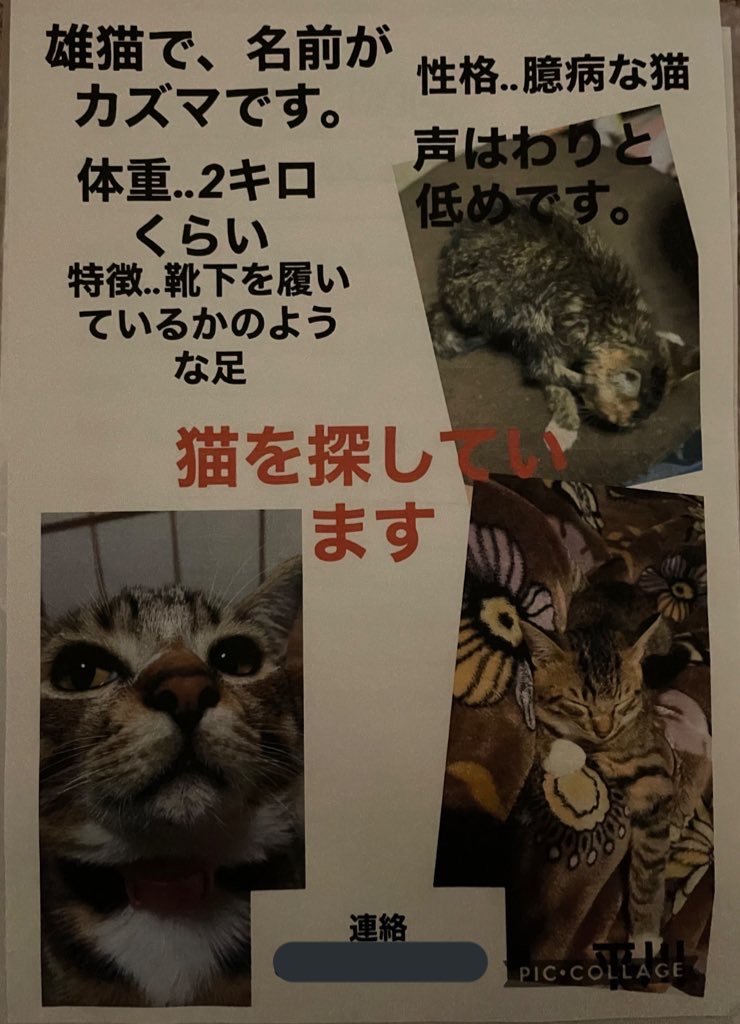 雄猫で、名前が
カズマです。
体重..2キロ
くらい
特徴..靴下を履い
ているかのよう
な足
性格..臆病な猫
声はわりと
低めです。
猫を探してい
ます
連絡
平川
PIC•COLLAGE